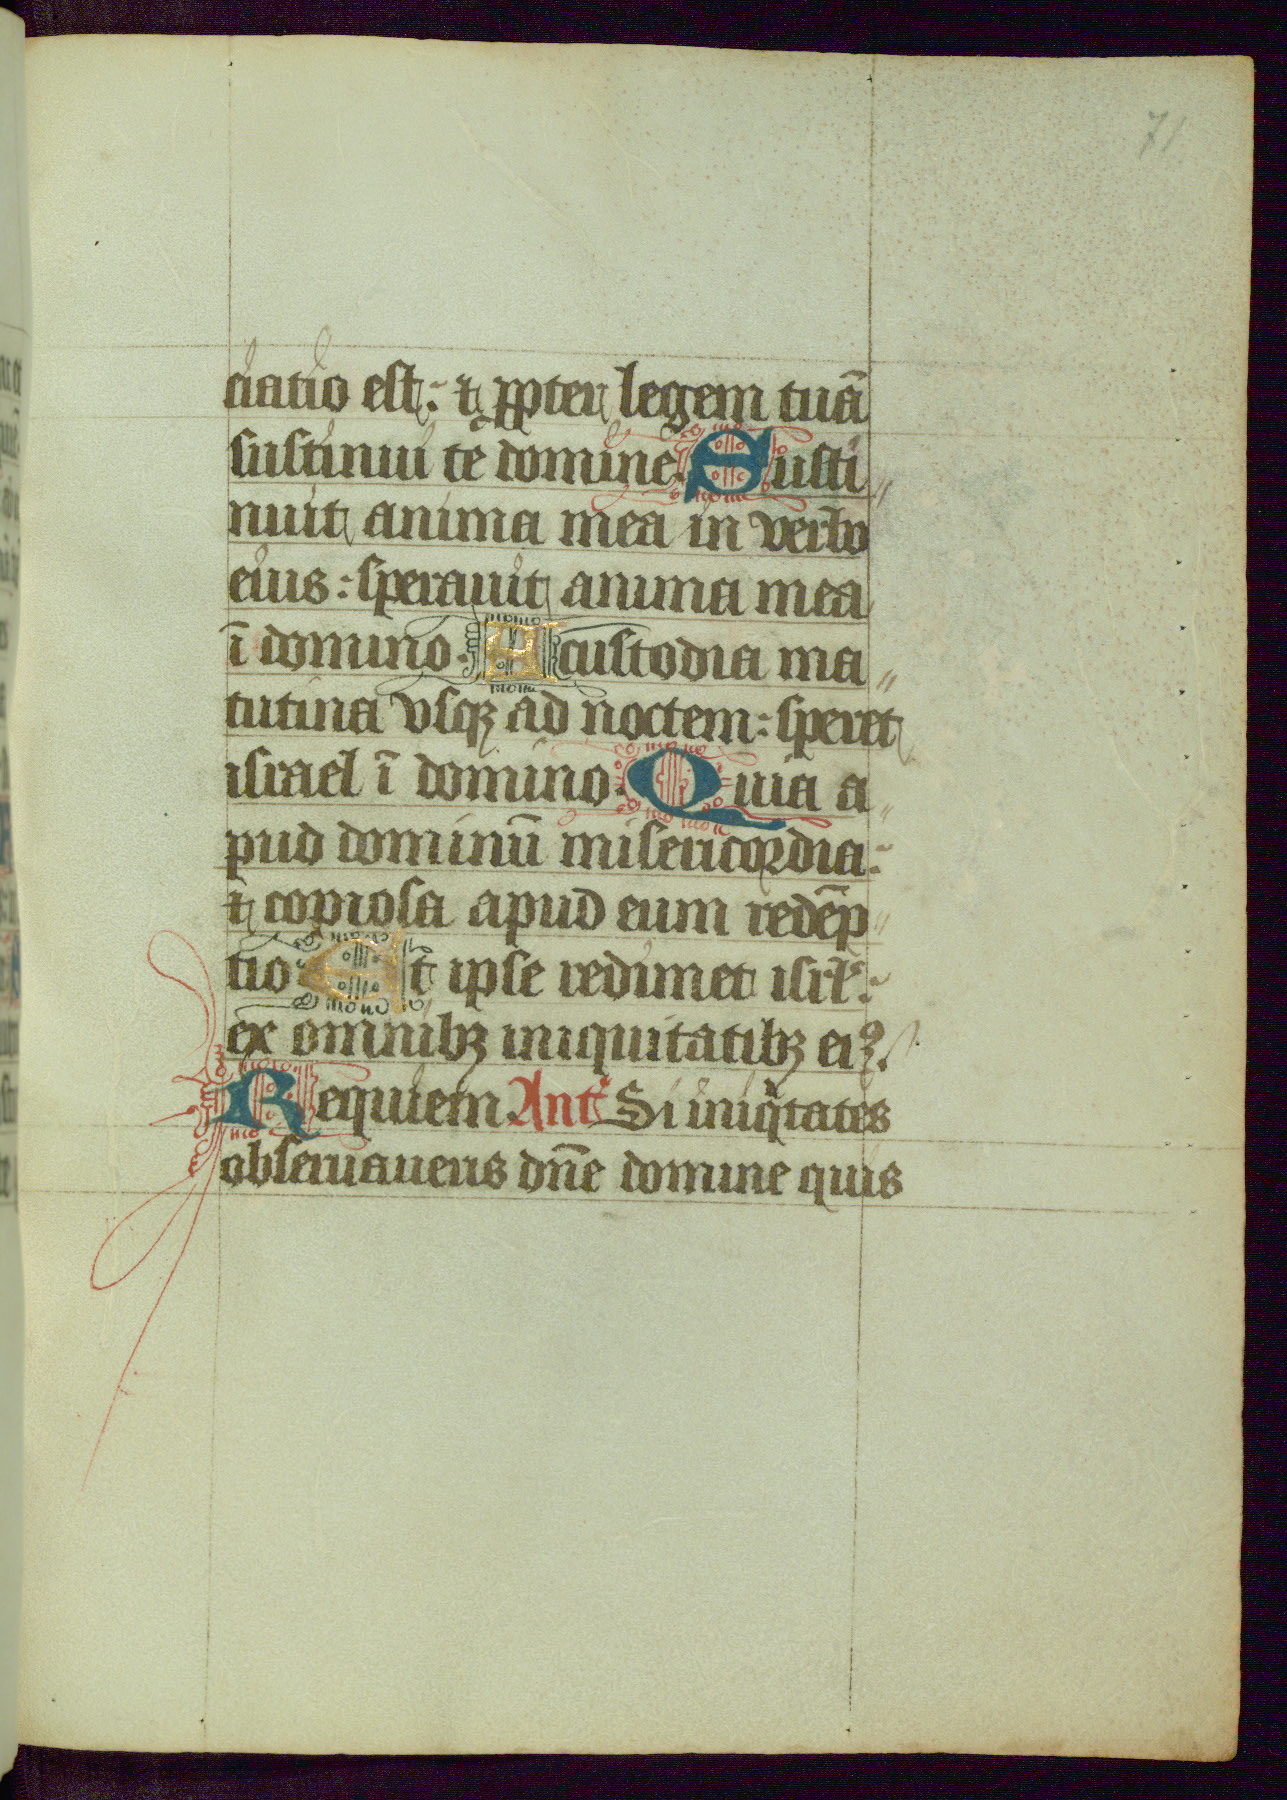 71
ciatio est: ⁊ ꝓpter legem tuā
sustinui te domine. Susti〃
nuit anima mea in verbo
eius: sperauit anima mea
ī domino. A custodia ma〃
tutina vsqꝫ ad noctem: speret
israel ī domino. Quia a〃
pud dominū misericordia:
⁊ copiosa apud eum redēp〃
tio Et ipse redimet isrl̄:
ex omnibꝫ iniquitatibꝫ eiꝰ.
Requiem Ant̄ Si iniqͥtates
obseruaueris dn̄e domine quis